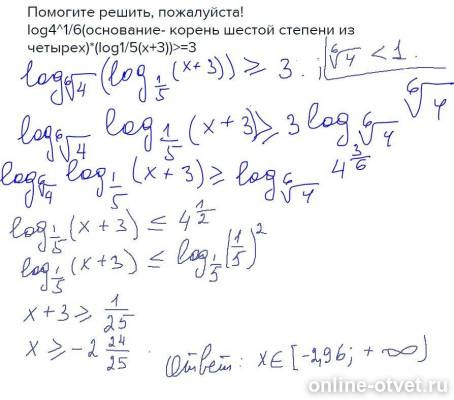 Помогите решить, пожалуйста!
log4^1/6(основание- корень шестой степени из
четырех)*(log1/5(x+3))>=3
log_{⁶√4} (log_{1/5} (x+3)) ≥ 3. ; ⁶√4 < 1.
log_{⁶√4} log_{1/5} (x+3) ≥ 3 log_{⁶√4} ⁶√4
log_{⁶√4} log_{1/5} (x+3) ≥ log_{⁶√4} 4^{3/6}
log_{1/5} (x+3) ≤ 4^{1/2}
log_{1/5} (x+3) ≤ log_{1/5} (1/5)^2
x+3 ≥ 1/25
x ≥ -2 24/25. Ответ: x∈[-2,96; +∞)
online-otvet.ru